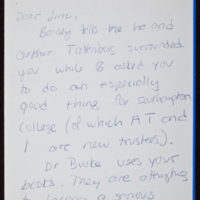 Dear June,
Barney tells me he and
Arthur surrounded
you while B asked you
to do an especially
good thing for Southampton
College (of which AT and
I are new trustees).
Dr Burke uses your
books. They are attempting
to become a serious